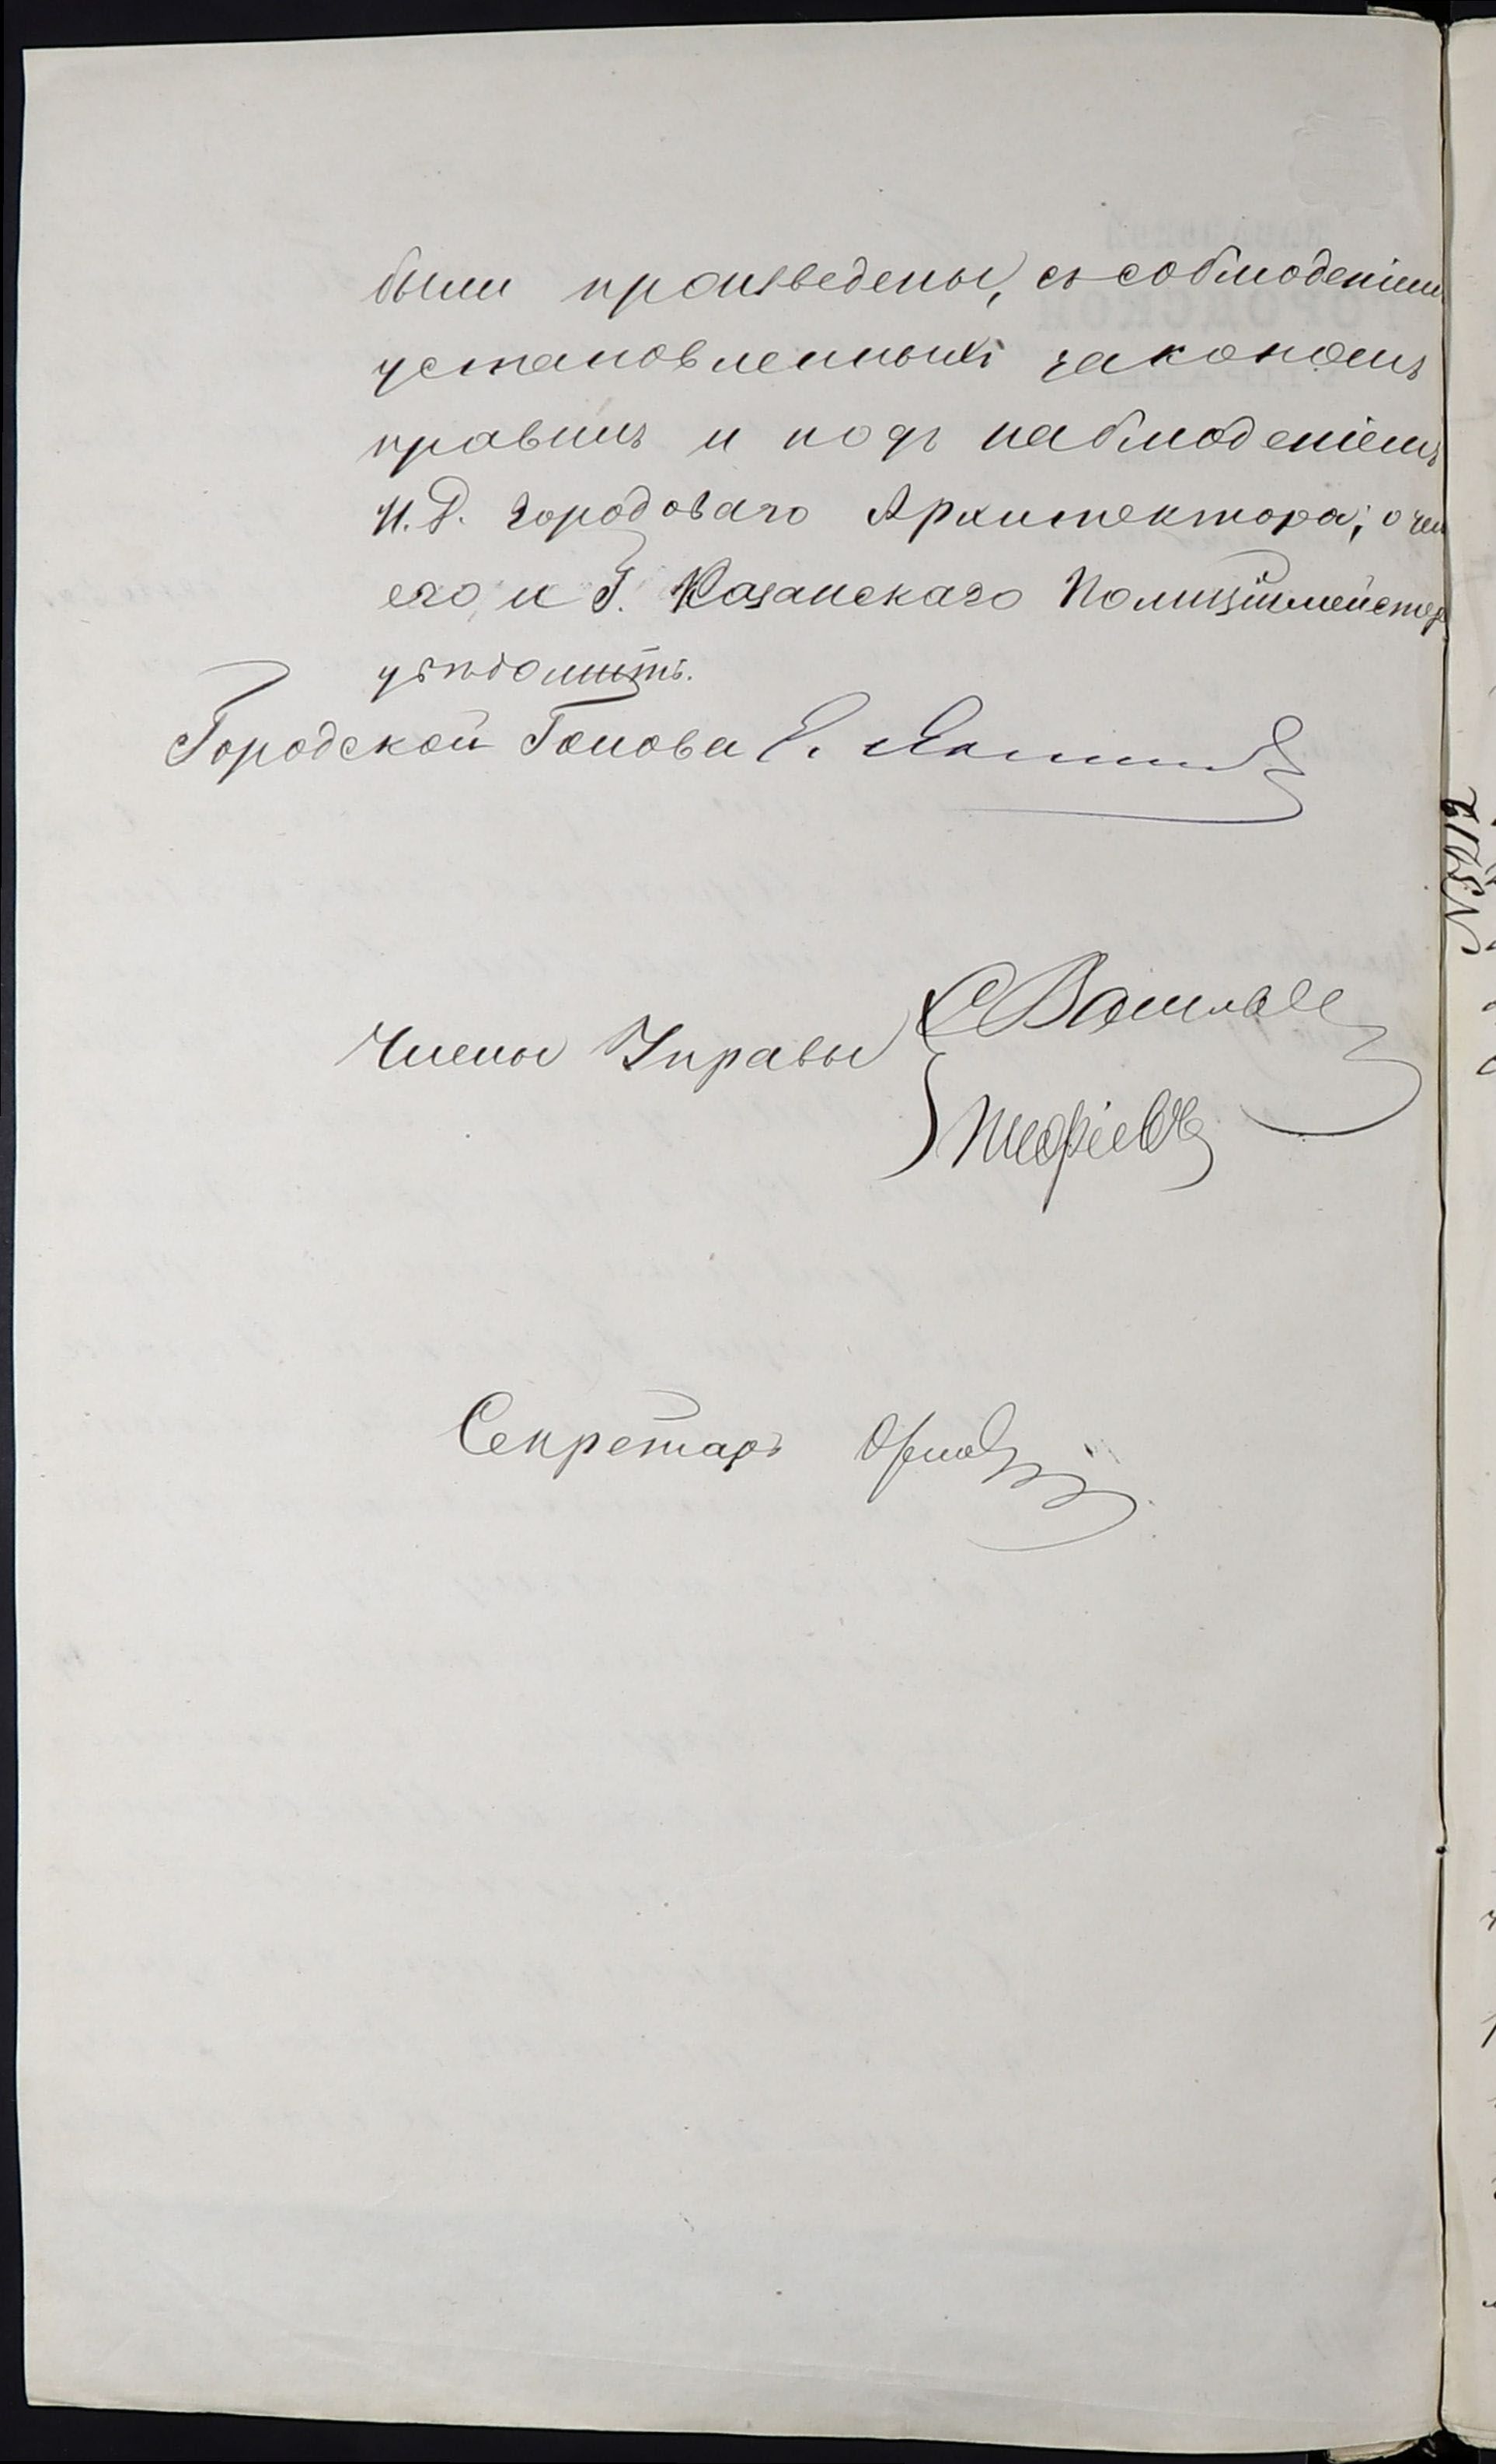 были произведены, съ соблюденіем
установленныхъ закономъ
правилъ и подъ наблюденіемъ
И. Д. Городоваго Архитектора; о чем
его и Г. Казанскаго Полиціймейстер
увѣдомить.
Городской Голова Е.
Члены Управы
Секретарь